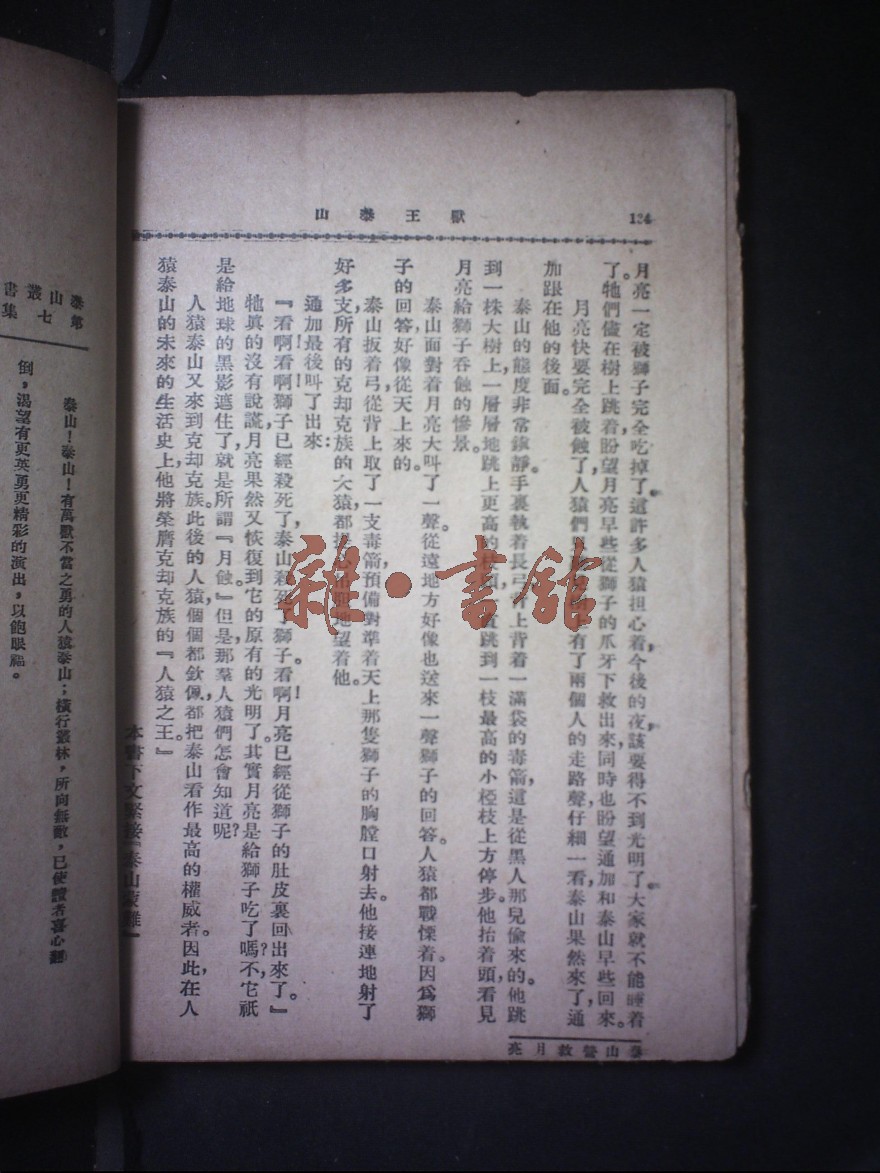 獸王泰山
134
月亮一定被獅子完全吃掉了，這許多人猿担心着，今後的夜該要得不到光明了。大家就不能睡着
了。牠們儘在樹上跳着，盼望月亮早些從獅子的爪牙下救出來，同時也盼望通加和泰山早些回來。
月亮快要完全被蝕了，人猿們
上有了兩個人的走路聲，仔細一看，泰山果然來了，通
加跟在他的後面。
泰山的態度非常鎮靜。手裏執着長弓，背上背着一滿袋的毒箭，這是從黑人那兒偷來的。他跳
到一株大樹上，一層層地跳上更高的
跳到一枝最高的小椏枝上方停步。他抬着頭，看見
月亮給獅子吞蝕的慘景。
泰山面對着月亮大叫了一聲。從遠地方好像也送來一聲獅子的回答。人猿都戰慄着。因爲獅
子的回答，好像從天上來的。
泰山扳着弓，從背上取了一支毒箭，預備對準着天上那隻獅子的胸膛口射去。他接連地射了
好多支，所有的克却克族的大猿，都
地望着他。
通加最後叫了出來：
『看啊！看啊！獅子已經殺死了，泰山殺死了獅子。看啊！月亮已經從獅子的肚皮裏回出來了。』
牠眞的沒有說謊，月亮果然又恢復到它的原有的光明了。其實月亮是給獅子吃了嗎？不，它祇
是給地球的黑影遮住了，就是所謂『月蝕。』但是那羣人猿們怎會知道呢？
人猿泰山又來到克却克族。此後的人猿，個個都欽佩，都把泰山看作最高的權威者。因此，在人
猿泰山的未來的生活史上，他將榮膺克却克族的『人猿之王。』
本書下文緊接『泰山蒙難』
泰山營救月亮
泰山叢書
第七集
泰山！泰山！有萬獸不當之勇的人猿泰山；橫行叢林，所向無敵，已使讀者喜心翻
倒，渴望有更英勇更精彩的演出，以飽眼福。
雜·書館